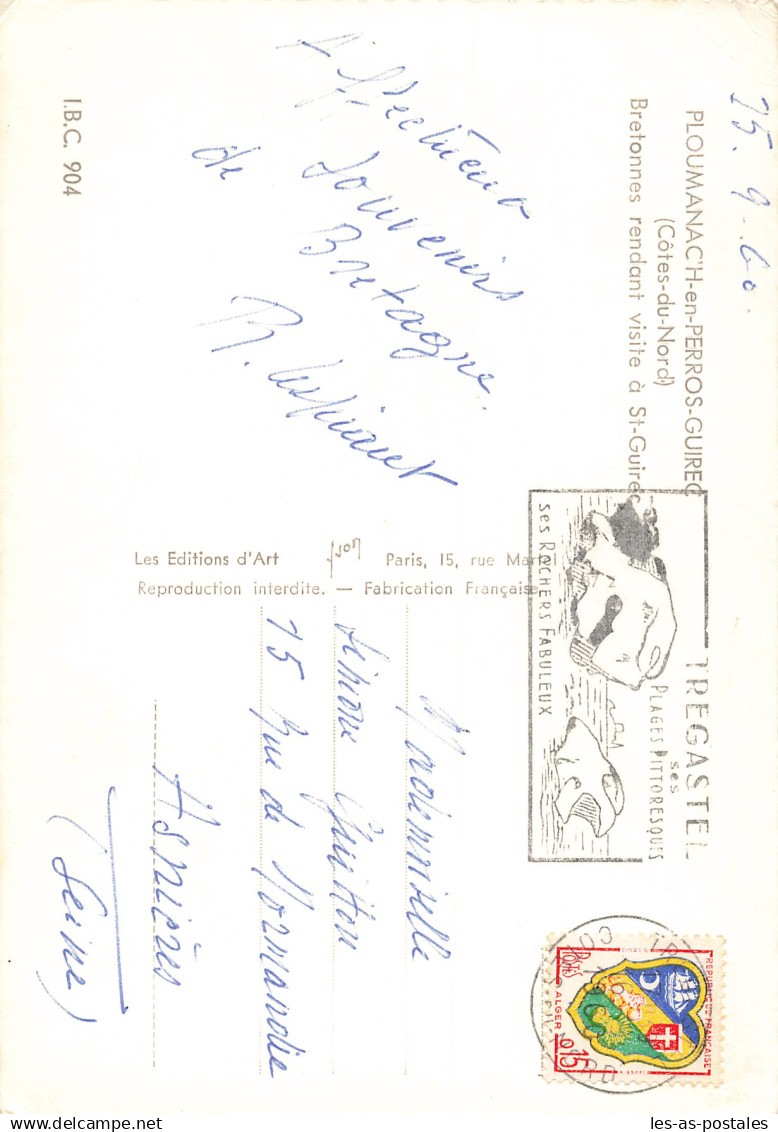 15.9.60.
PLOUMANAC'H-en-PERROS-GUIREC
(Côtes-du-Nord)
Bretonnes rendant visite à St-Guirec
Affectueux
souvenirs
de Bretagne.
R.
I.B.C. 904
Les Editions d'Art
Paris, 15, rue
Reproduction interdite. — Fabrication Française
TREGASTEL
ses
PLAGES PITTORESQUES
ses ROCHERS FABULEUX
REPUBLIQUE FRANÇAISE
POSTES
ALGER
0,15
Mademoiselle
Simone Guitton
15 Rue de Normandie
Asnières
(Seine)
les-as-postales